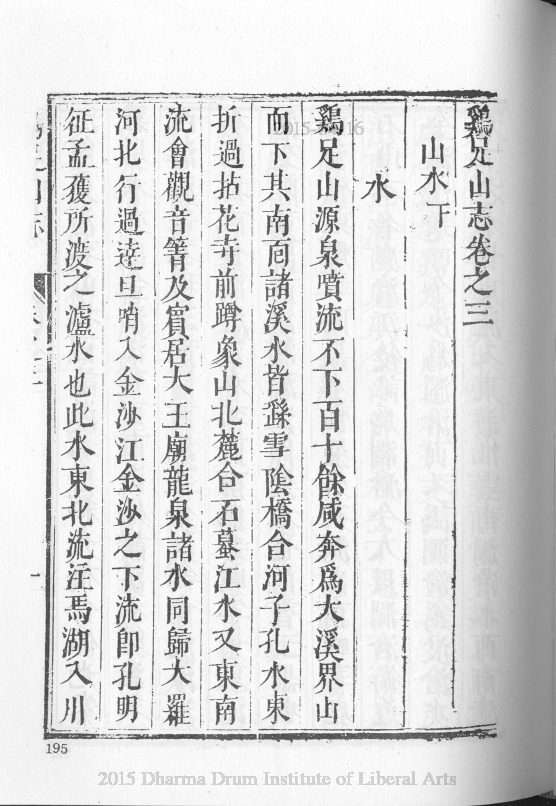 鷄足山志卷之三
山水下
水
鷄足山源泉噴流不下百十餘咸奔爲大溪界山
而下其南面諸溪水皆繇雪陰橋合河子孔水東
折過拈花寺前蹲象山北麓合石蟇江水又東南
流會觀音箐及賓居大王廟龍泉諸水同歸大羅
河北行過達旦哨入金沙江金沙之下流卽孔明
征孟獲所渡之瀘水也此水東北流注焉湖入川
一
195
2015 Dharma Drum Institute of Liberal Arts